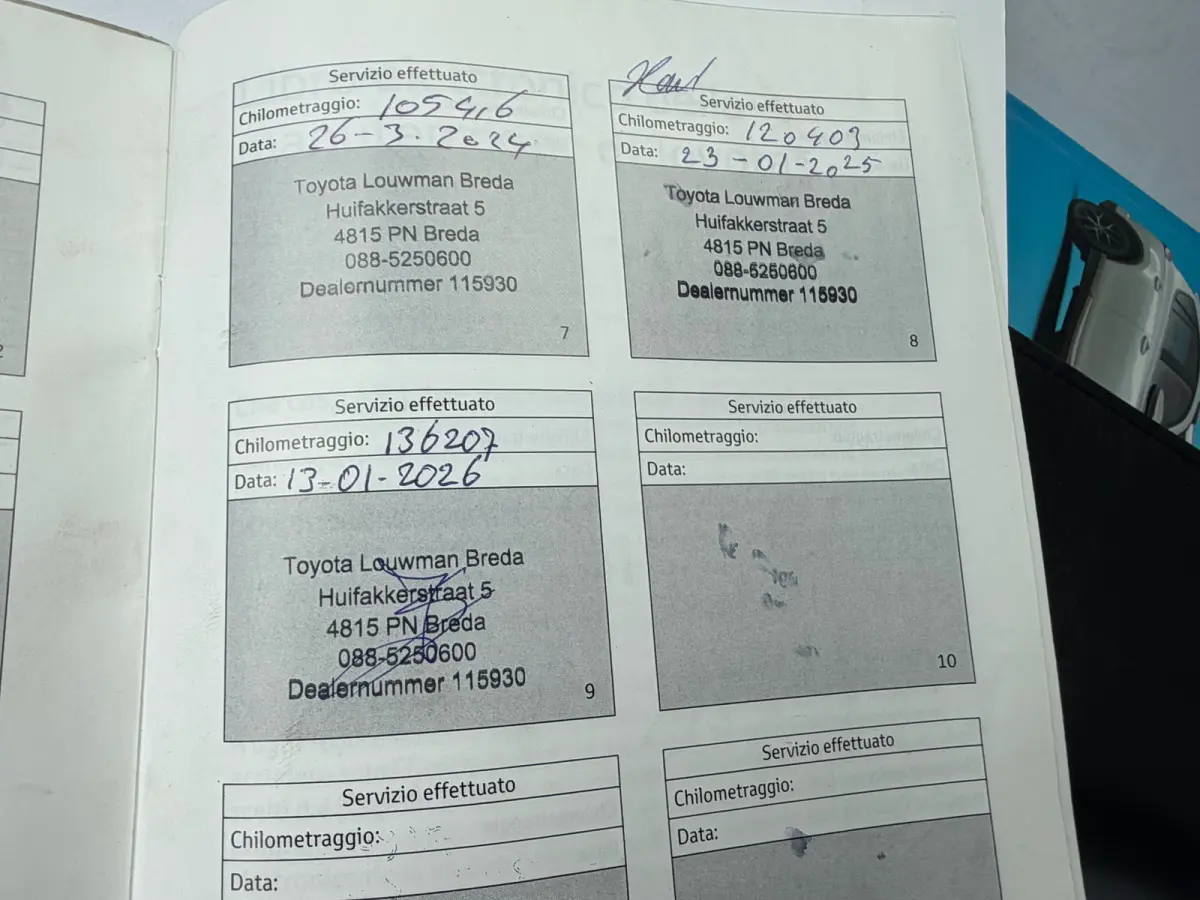 Servizio effettuato
Chilometraggio: 105416
Data: 26-3.2024
Toyota Louwman Breda
Huifakkerstraat 5
4815 PN Breda
088-5250600
Dealernummer 115930
7
Servizio effettuato
Chilometraggio: 120403
Data: 23-01-2025
Toyota Louwman Breda
Huifakkerstraat 5
4815 PN Breda
088-5250600
Dealernummer 115930
8
Servizio effettuato
Chilometraggio: 136207
Data: 13-01-2026
Toyota Louwman Breda
Huifakkerstraat 5
4815 PN Breda
088-5250600
Dealernummer 115930
9
Servizio effettuato
Chilometraggio:
Data:
10
Servizio effettuato
Chilometraggio:
Data:
Servizio effettuato
Chilometraggio:
Data: